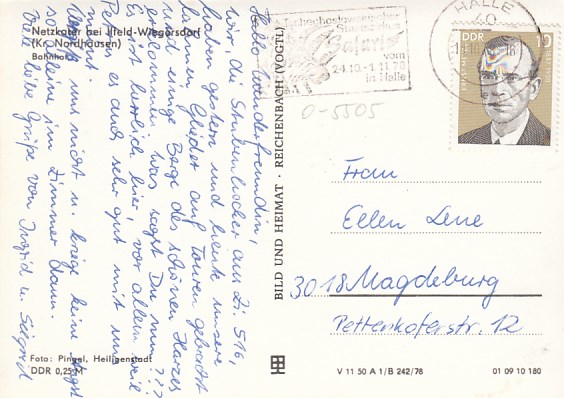 Netzkater bei Ilfeld-Wiegersdorf
(Kr. Nordhausen)
Bahnhof
Hallo, Wanderfreundin,
wir, die Stubenhocker aus Zi. 516,
haben gestern und heute unsere
Glieder auf Touren gebracht
und einige Berge des schönen Harzes
erklommen. Was sagst Du nun???
Es ist herrlich hier, vor allem weil
Petrus es auch sehr gut mit uns
meint.
uns nicht u. kriege keine Angst
so alleine im Zimmer dann.
Viele liebe Grüße von Ingrid u. Siegrid
Foto: Pingel, Heiligenstadt
DDR 0,25 M
BILD UND HEIMAT · REICHENBACH (VOGTL)
Tschechoslowakischer
Staatszirkus
Safari
vom
24.10.-1.11.78
in Halle
HALLE
40
DDR
10
O-5505
Frau
Ellen Lene
3018 Magdeburg
Pettenkoferstr. 12
V 11 50 A 1/B 242/78
01 09 10 180